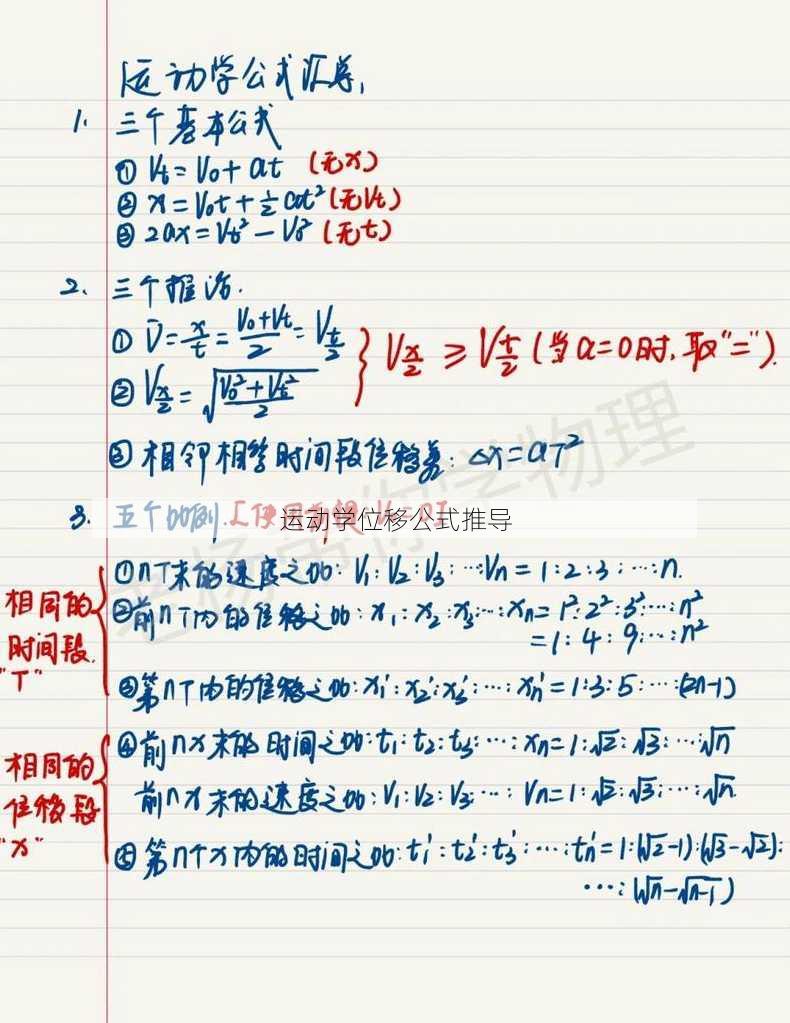 运动学公式汇总,
1. 三个基本公式
① Vt=V0+at (无x)
② x=V0t+½at² (无Vt)
③ 2ax=Vt²-V0² (无t)
2. 三个推论.
① V̄=x/t=(V0+Vt)/2=V_{t/2}
② V_{x/2}=√((V0²+Vt²)/2)
V_{x/2} ≥ V_{t/2} (当a=0时,取"=").
③ 相邻相等时间段位移差: Δx=aT²
3. 五个比例.
运动学位移公式推导
相同的时间段"T"
① nT末的速度之比: V₁:V₂:V₃:…Vn=1:2:3:…:n.
② 前nT内的位移之比: x₁:x₂:x₃:…:xn=1²:2²:3²:…:n²
=1:4:9:…:n²
③ 第nT内的位移之比: x₁':x₂':x₃':…:xn'=1:3:5:…:(2n-1)
相同的位移段"x"
④ 前nx末的时间之比: t₁:t₂:t₃:…:xn=1:√2:√3:…:√n
前nx末的速度之比: V₁:V₂:V₃:…:Vn=1:√2:√3:…:√n.
⑤ 第n个x内的时间之比: t₁':t₂':t₃':…:tn'=1:(√2-1):(√3-√2):
…:(√n-√n-1)